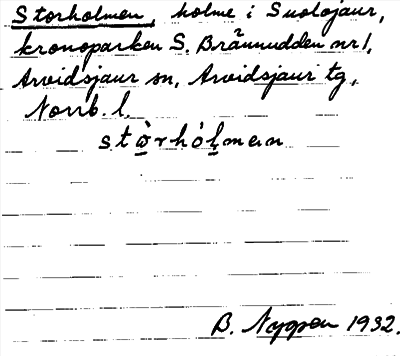 Storholmen, holme i Suolojaur,
kronoparken S. Brännudden nr 1,
Arvidsjaur sn, Arvidsjaur tg,
Norrb. l.
stò̱rhóḻmæn
B. Nygren 1932.